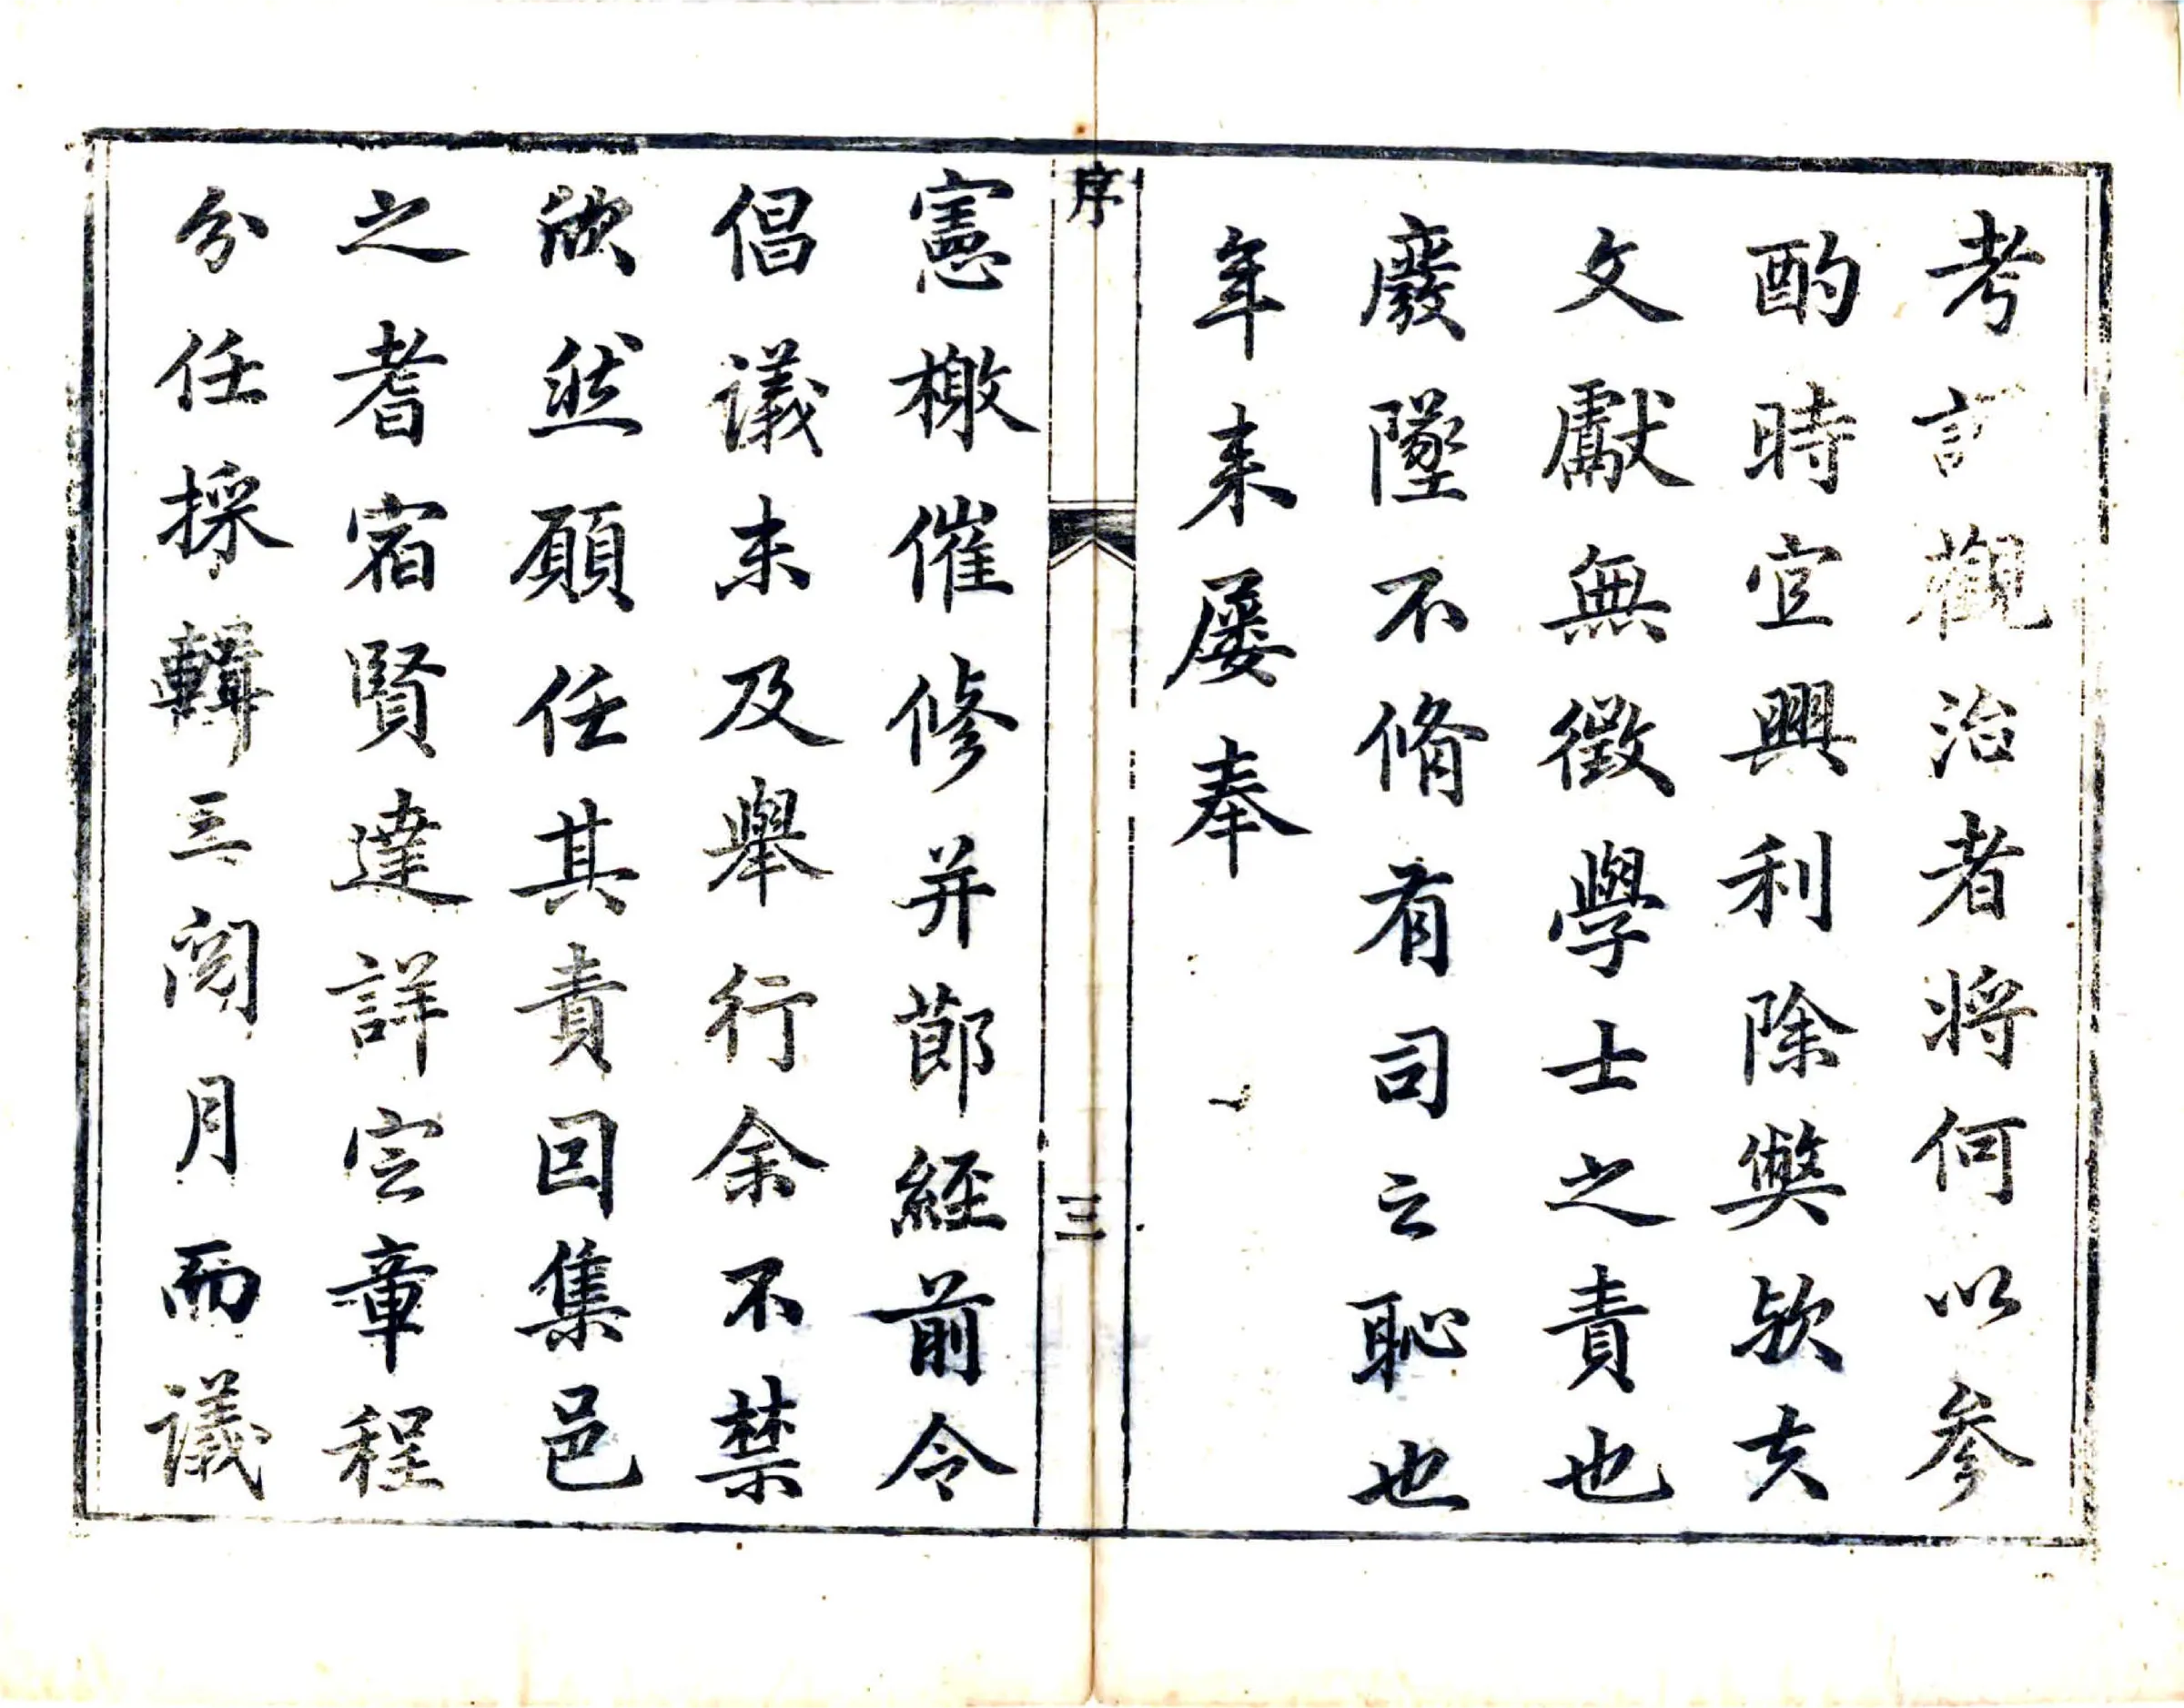 考訂觀治者將何以參
酌時宜興利除獘欤夫
文獻無徵學士之責也
廢墜不脩有司之恥也
年来屡奉
序
三
憲檄催修并莭經前令
倡議未及舉行余不禁
欣然願任其責回集邑
之耆宿賢達詳定章程
分任採輯三閱月而議